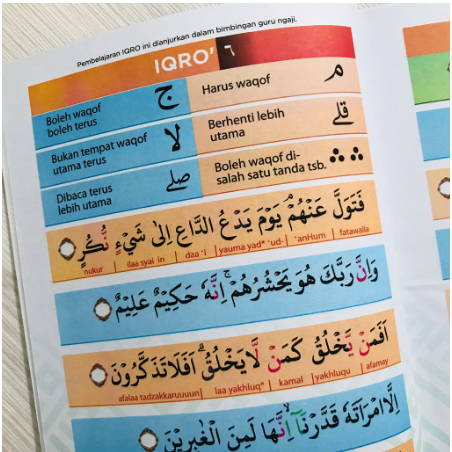 Pembelajaran IQRO ini dianjurkan dalam bimbingan guru ngaji.
IQRO' ٦
Boleh waqof
boleh terus
ج
Harus waqof
م
Bukan tempat waqof
utama terus
لا
Berhenti lebih
utama
قلے
Dibaca terus
lebih utama
صلے
Boleh waqof di-
salah satu tanda tsb.
فَتَوَلَّ عَنْهُمْ ۘ يَوْمَ يَدْعُ الدَّاعِ اِلٰى شَيْءٍ نُّكُرٍ
fatawalla | 'anHum | yauma yadᵃ 'ud- | daa 'i | ilaa syai in | nukur
وَاِنَّ رَبَّكَ هُوَ يَحْشُرُهُمْ ۚ اِنَّهٗ حَكِيْمٌ عَلِيْمٌ
اَفَمَنْ يَّخْلُقُ كَمَنْ لَّا يَخْلُقُ ۗ اَفَلَا تَذَكَّرُوْنَ
afamay | yakhluqu | kamal | laa yakhluqᵃ | afalaa tadzakkaruuuun
اِلَّا امْرَاَتَهٗ قَدَّرْنَآ ۙ اِنَّهَا لَمِنَ الْغٰبِرِيْنَ